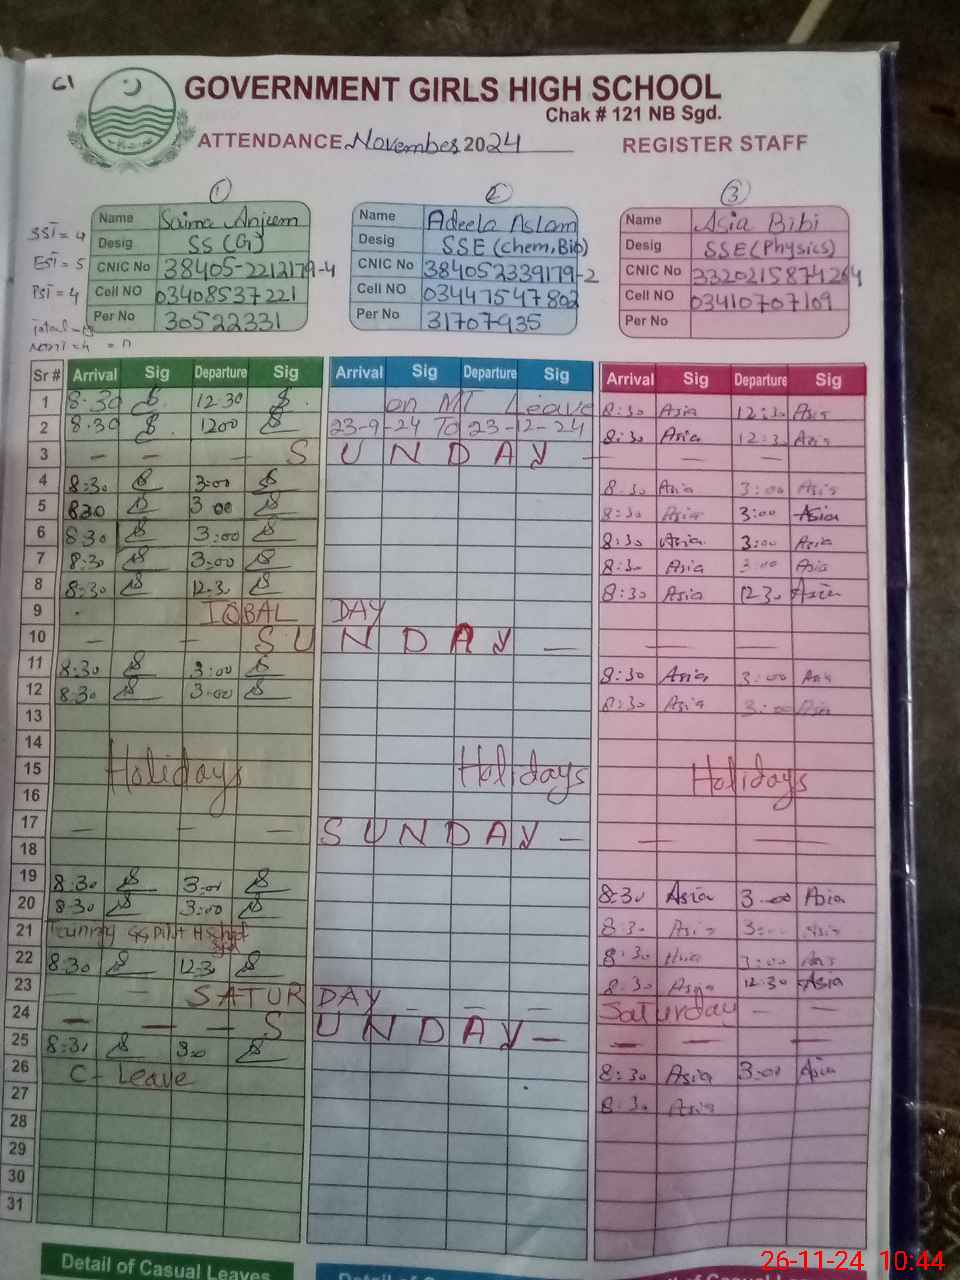 61
GOVERNMENT GIRLS HIGH SCHOOL
Chak # 121 NB Sgd.
ATTENDANCE November 2024 REGISTER STAFF
① ② ③
SST = 4
EST = 5
PST = 4
Name Saima Anjum
Desig SS (G)
CNIC No 38405-2212179-4
Cell NO 03408537221
Per No 30522331
Name Adeela Aslam
Desig SSE (Chem, Bio)
CNIC No 384052339179-2
Cell NO 03447547802
Per No 31707935
Name Asia Bibi
Desig SSE (Physics)
CNIC No 3320215874264
Cell NO 03410707109
Per No
Sr # Arrival Sig Departure Sig Arrival Sig Departure Sig Arrival Sig Departure Sig
1 8:30 12:30 on MT Leave 8:30 Asia 12:30 Asia
2 8:30 1200 23-9-24 To 23-12-24 8:30 Asia 12:30 Asia
3 — — — S U N D A Y — — —
4 8:30 3:00 8:30 Asia 3:00 Asia
5 830 3 00 8:30 Asia 3:00 Asia
6 8:30 3:00 8:30 Asia 3:00 Asia
7 8:30 3:00 8:30 Asia 3:00 Asia
8 8:30 12:30 8:30 Asia 12:30 Asia
9 IQBAL DAY
10 — — S U N D A Y — — —
11 8:30 3:00 8:30 Asia 3:00 Asia
12 8:30 3:00 8:30 Asia 3:00 Asia
13
14
15 Holidays Holidays Holidays
16
17 — — — S U N D A Y — — —
18
19 8:30 3:00 8:30 Asia 3:00 Asia
20 8:30 3:00 8:30 Asia 3:00 Asia
21 8:30 Asia 3:00 Asia
22 8:30 12:30 8:30 Asia 12:30 Asia
23 SATURDAY — — Saturday — —
24 — — — S U N D A Y — — — —
25 8:30 3:00 8:30 Asia 3:00 Asia
26 C - Leave 8:30 Asia
27
28
29
30
31
Detail of Casual Leaves
26-11-24 10:44